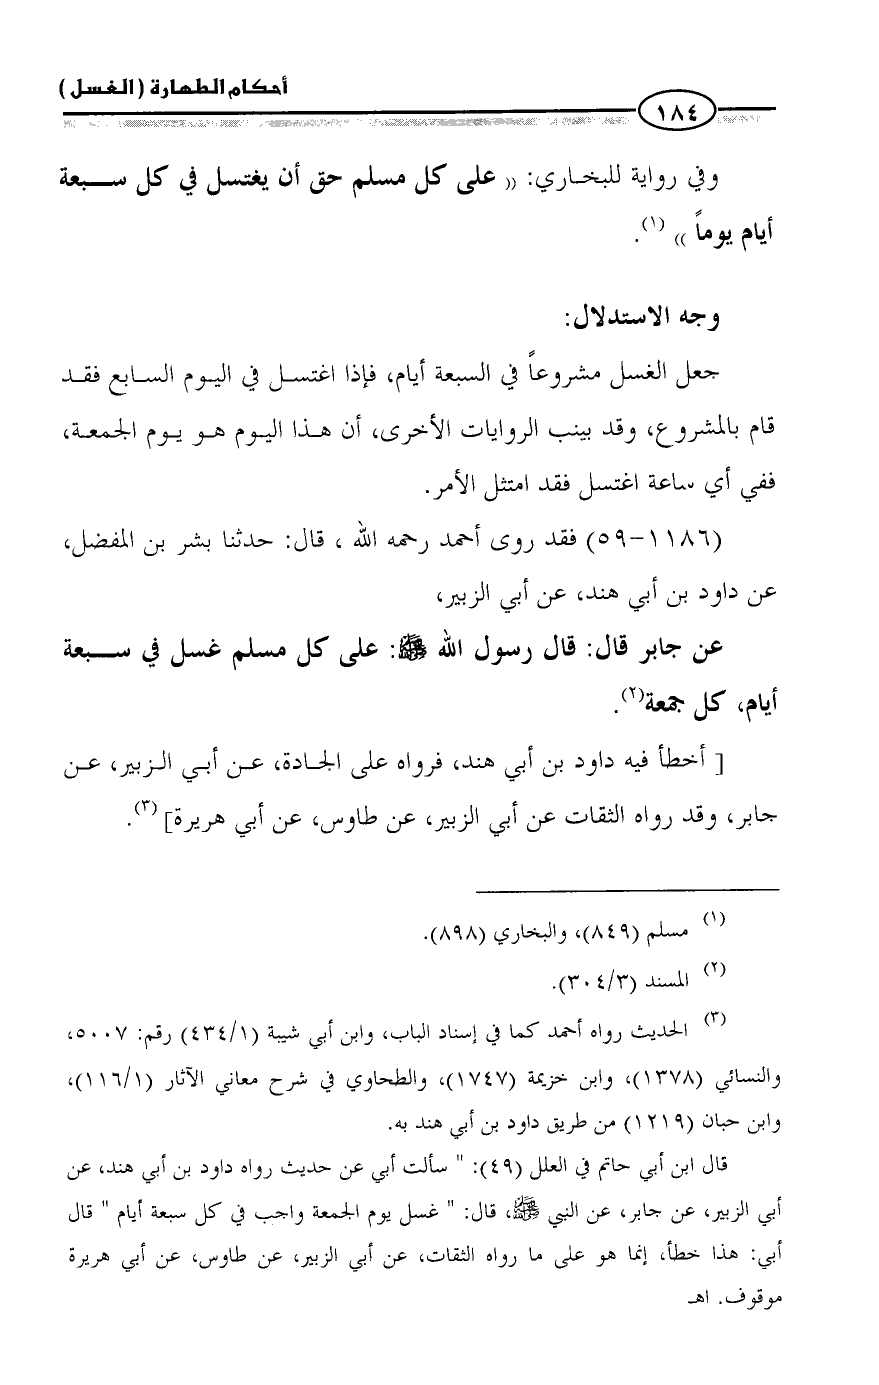 أحكام الطهارة (الغسل)
١٨٤
وفي رواية للبخاري: (( على كل مسلم حق أن يغتسل في كل سبعة
أيام يوماً )) (١).
وجه الاستدلال:
جعل الغسل مشروعاً في السبعة أيام، فإذا اغتسل في اليوم السابع فقد
قام بالمشروع، وقد بينب الروايات الأخرى، أن هذا اليوم هو يوم الجمعة،
ففي أي ساعة اغتسل فقد امتثل الأمر.
(١١٨٦-٥٩) فقد روى أحمد رحمه الله ، قال: حدثنا بشر بن المفضل،
عن داود بن أبي هند، عن أبي الزبير،
عن جابر قال: قال رسول الله ﷺ: على كل مسلم غسل في سبعة
أيام، كل جمعة(٢).
[ أخطأ فيه داود بن أبي هند، فرواه على الجادة، عن أبي الزبير، عن
جابر، وقد رواه الثقات عن أبي الزبير، عن طاوس، عن أبي هريرة] (٣).
(١) مسلم (٨٤٩)، والبخاري (٨٩٨).
(٢) المسند (٣٠٤/٣).
(٣) الحديث رواه أحمد كما في إسناد الباب، وابن أبي شيبة (٤٣٤/١) رقم: ٥٠٠٧،
والنسائي (١٣٧٨)، وابن خزيمة (١٧٤٧)، والطحاوي في شرح معاني الآثار (١١٦/١)،
وابن حبان (١٢١٩) من طريق داود بن أبي هند به.
قال ابن أبي حاتم في العلل (٤٩): " سألت أبي عن حديث رواه داود بن أبي هند، عن
أبي الزبير، عن جابر، عن النبي ﷺ، قال: " غسل يوم الجمعة واجب في كل سبعة أيام " قال
أبي: هذا خطأ، إنما هو على ما رواه الثقات، عن أبي الزبير، عن طاوس، عن أبي هريرة
موقوف. اهـ